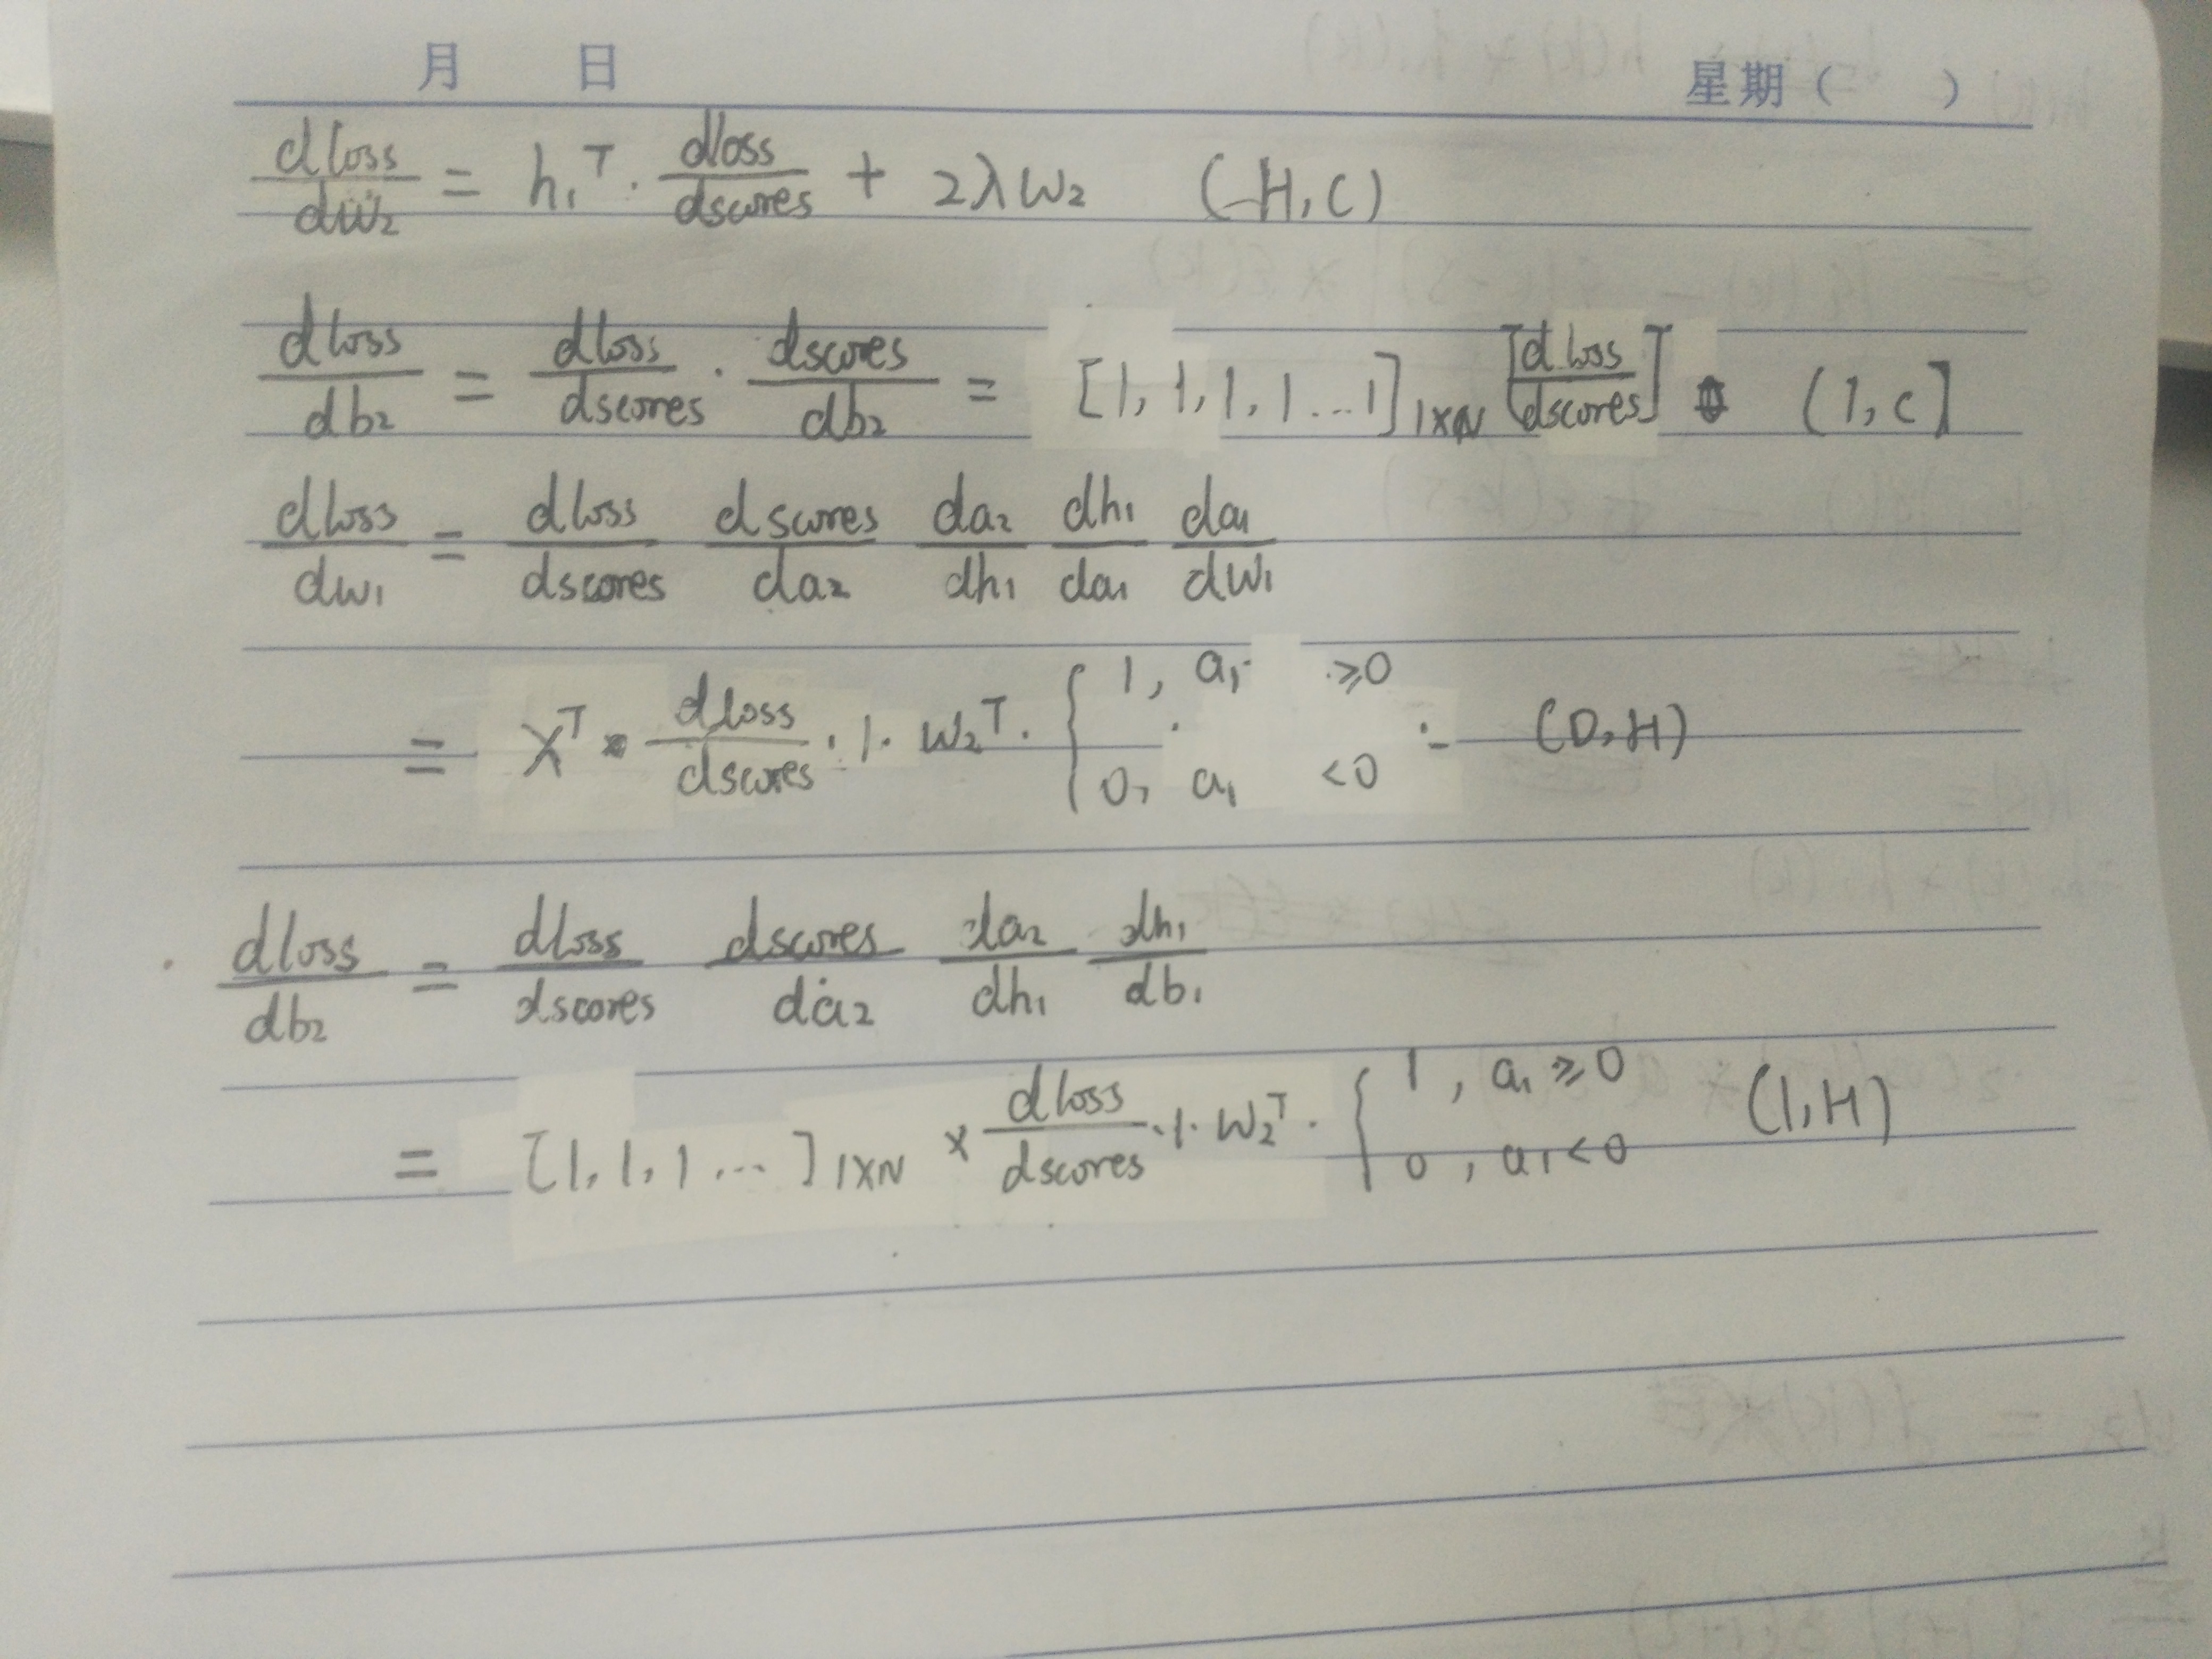 月 日 星期( )
dloss/dw₂ = h₁ᵀ · dloss/dscores + 2λw₂ (H, C)
dloss/db₂ = dloss/dscores · dscores/db₂ = [1, 1, 1, 1 ... 1]₁ₓN [dloss/dscores] (1, C]
dloss/dw₁ = dloss/dscores dscores/da₂ da₂/dh₁ dh₁/da₁ da₁/dw₁
= Xᵀ · dloss/dscores · 1 · w₂ᵀ · { 1, a₁ ≥0 ; 0, a₁ <0 (D, H)
dloss/db₂ = dloss/dscores dscores/da₂ da₂/dh₁ dh₁/db₁
= [1, 1, 1 ... ]₁ₓN × dloss/dscores · 1 · w₂ᵀ · { 1, a₁ ≥ 0 ; 0, a₁ < 0 (1, H)